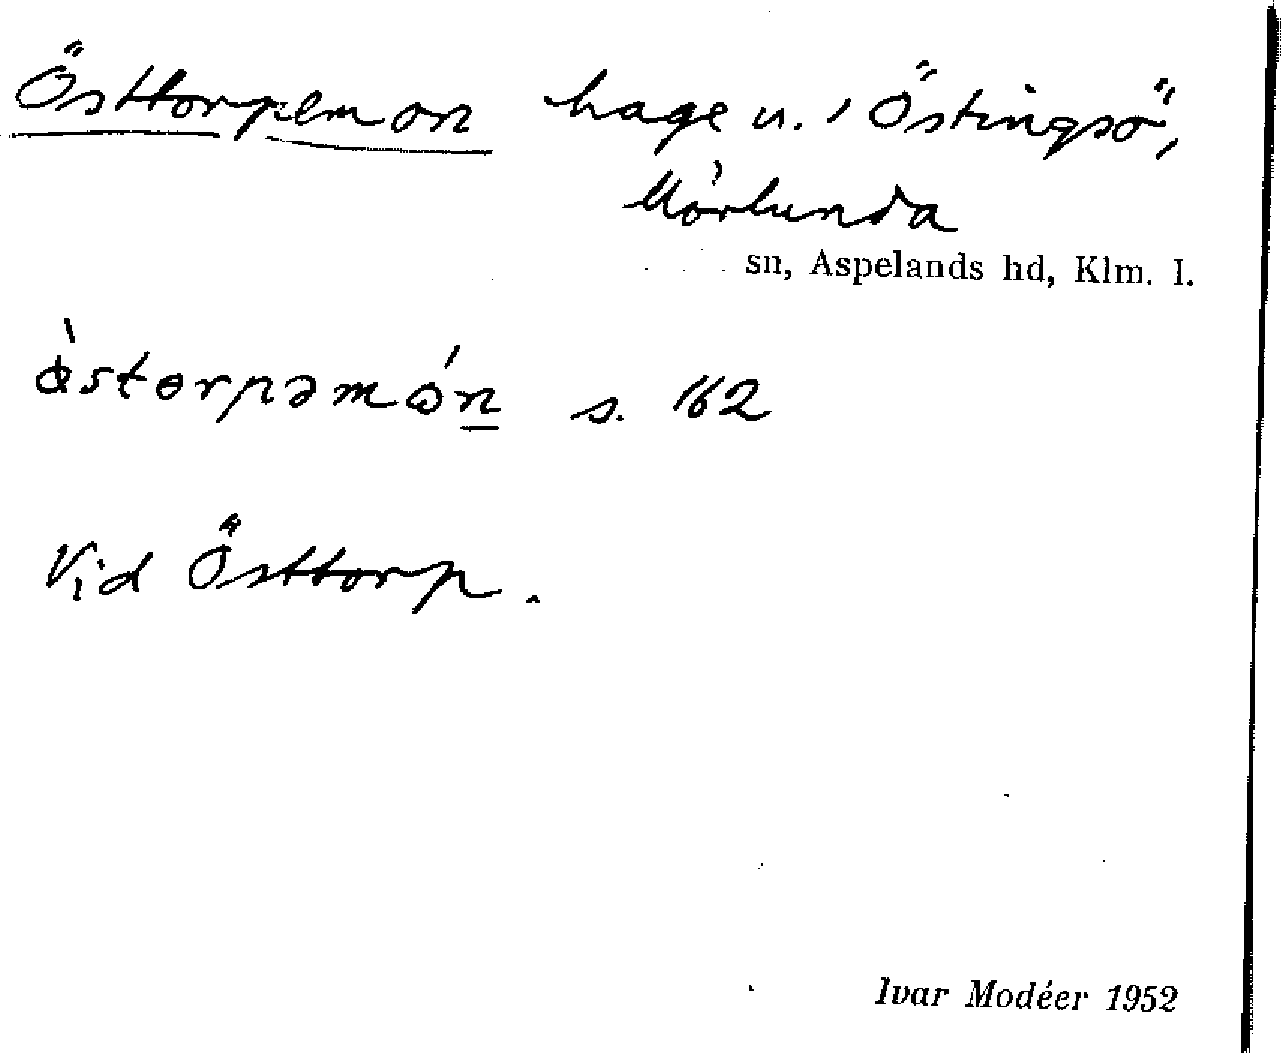 Östtorpemon hage u. 1 Östingsö,
Mörlunda
sn, Aspelands hd, Klm. l.
s. 162
Vid Östtorp.
Ivar Modéer 1952